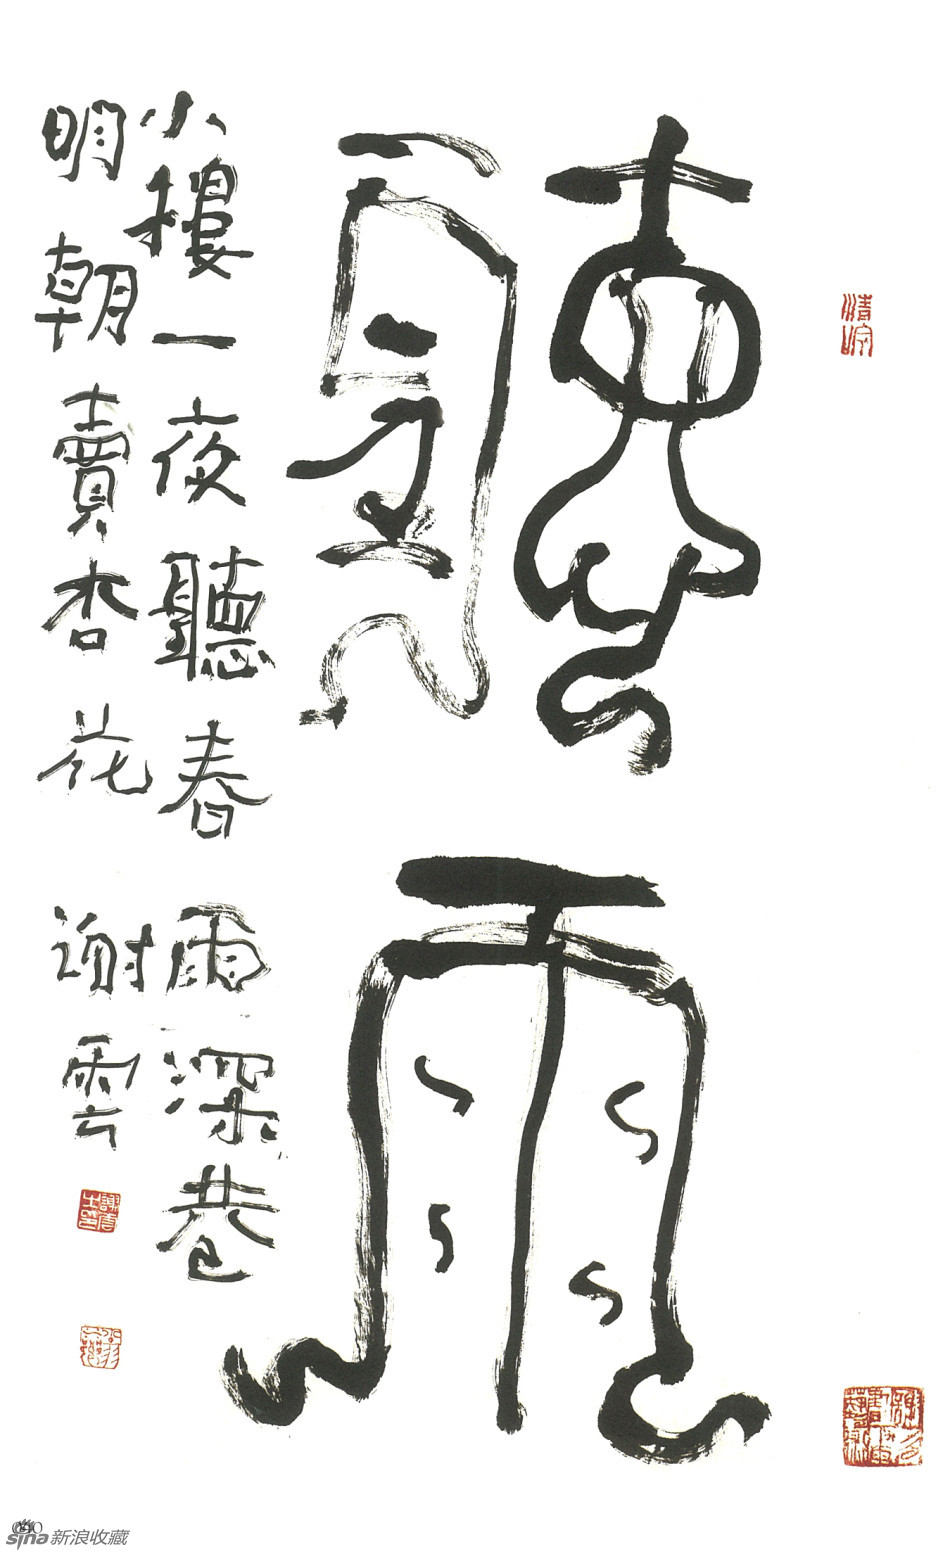 聽雨
小樓一夜聽春雨深巷
明朝賣杏花 谢雲
sina新浪收藏